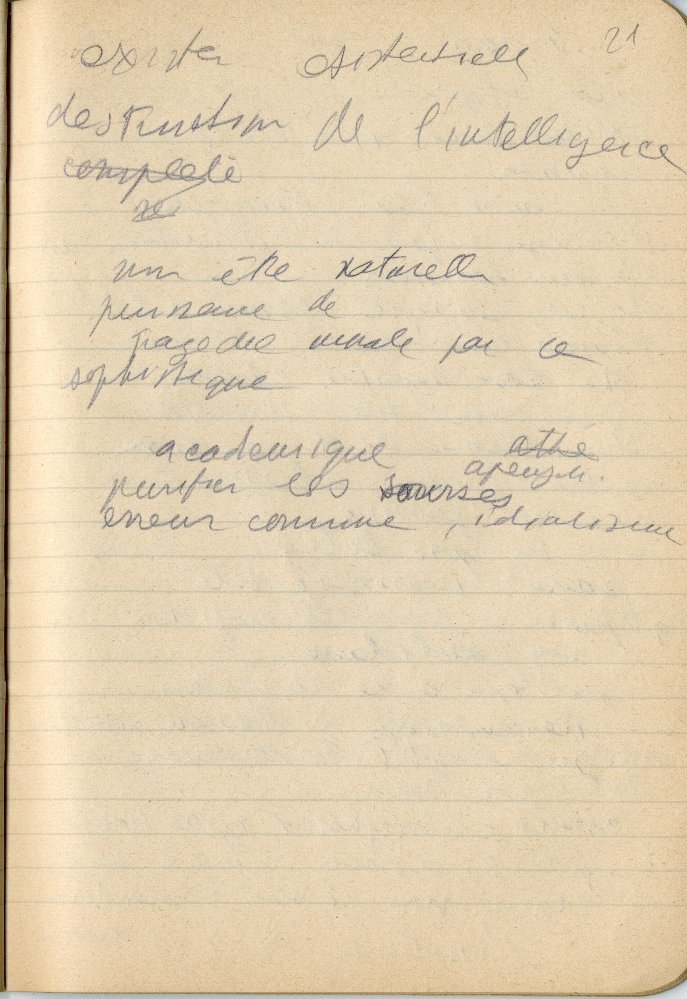 21
exister existentielle
destruction de l'intelligence
complète
ne
non être naturelle
puissance de
tragédie morale par ce
sophistique
académique athé
apeugh.
purifier les sources
erreur commune, idéalisme